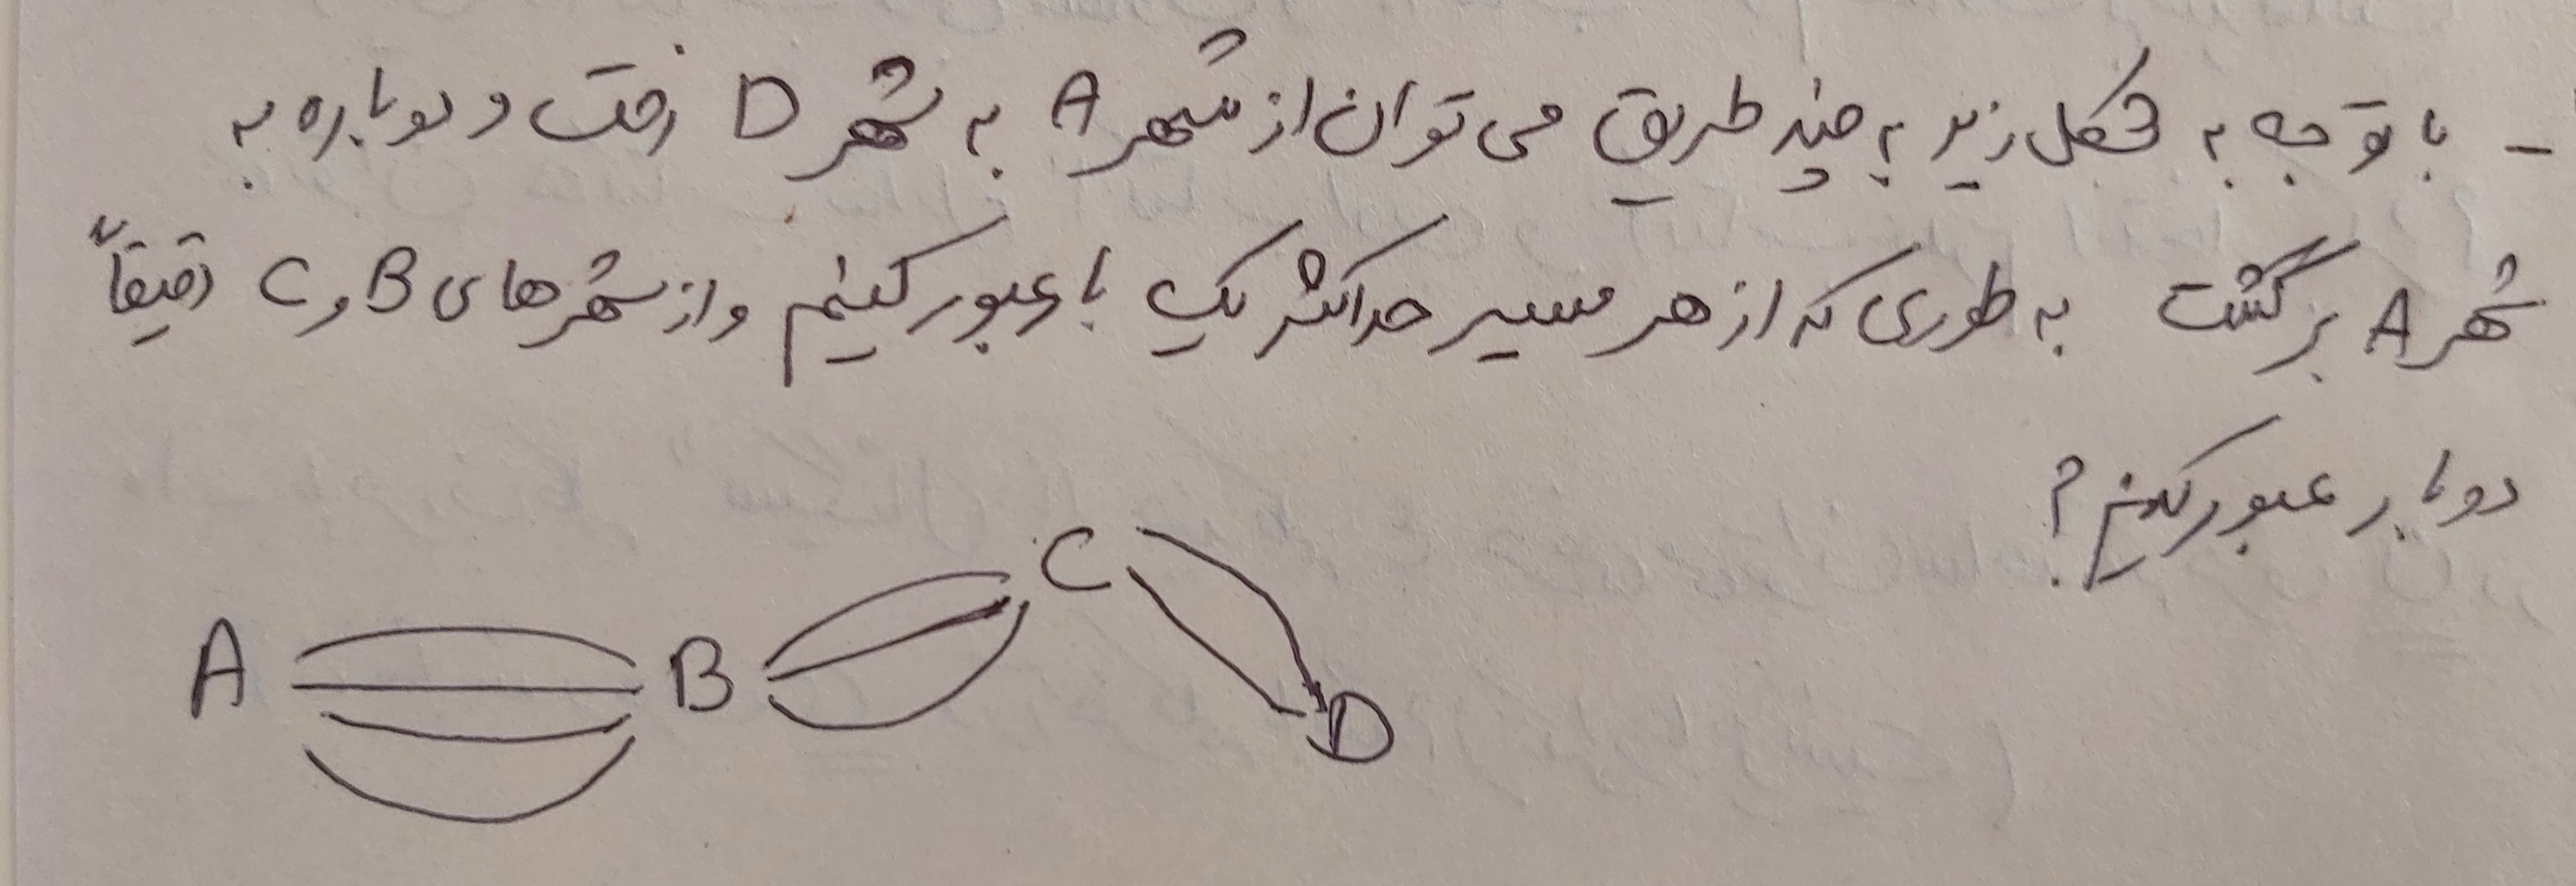 - با توجه به شکل زیر به چند طریق می توان از شهر A به شهر D رفت و دوباره به
شهر A برگشت به طوری که از هر مسیر حداکثر یک بار عبور کنیم و از شهرهای B و C دقیقاً
دوبار عبور کنیم؟
A B C D